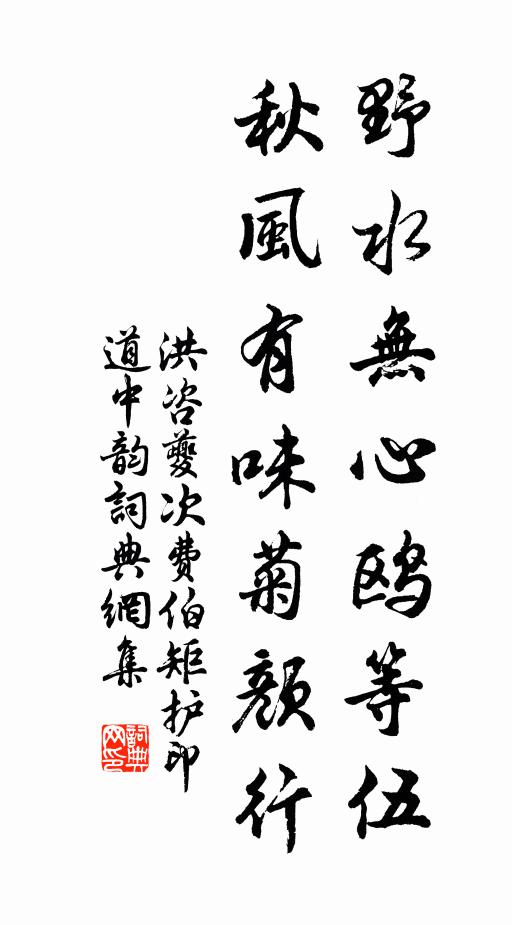 野水無心鸥等伍
秋風有味菊顏行
洪咨夔次费伯矩护印
道中韵詞典網集
詞典
网印